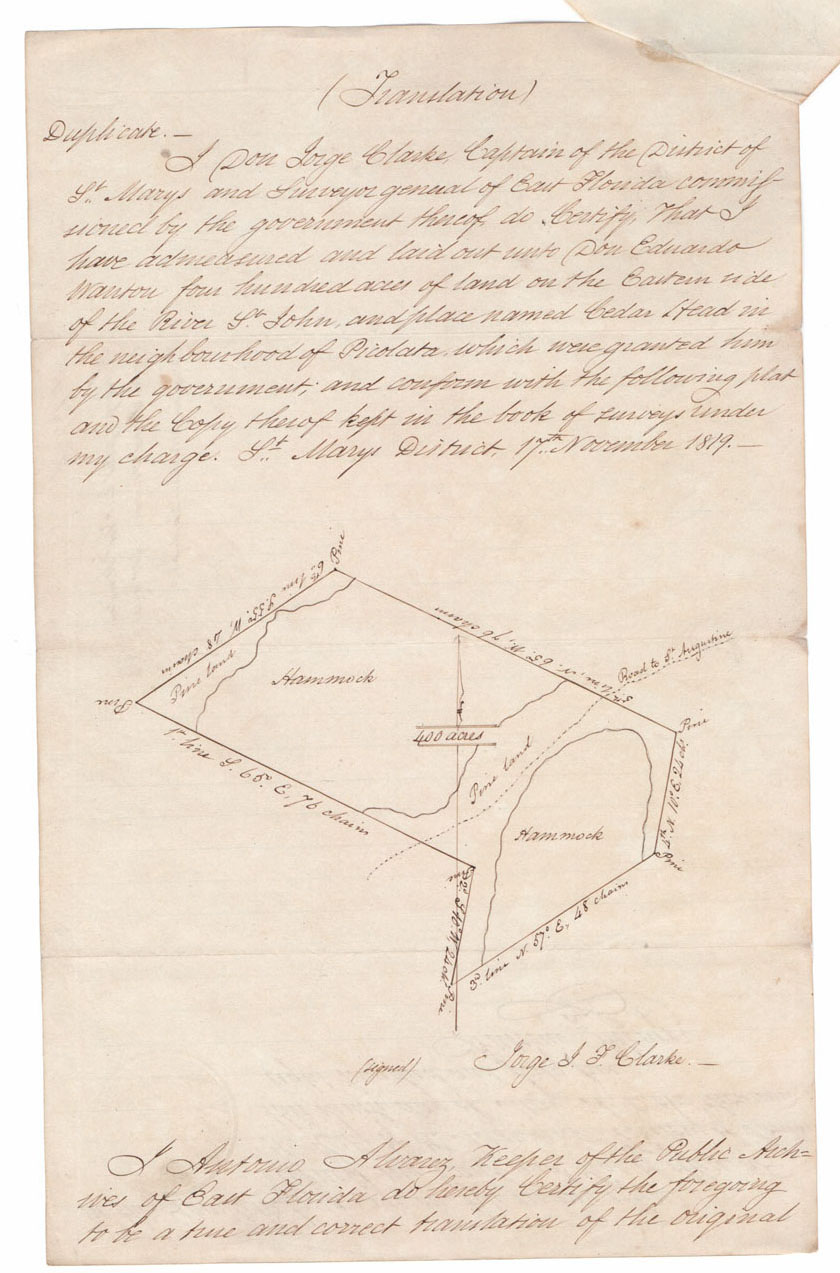 (Translation)
Duplicate. —
I Don Jorge Clarke, Captain of the District of
St. Marys and Surveyor general of East Florida commis-
sioned by the government thereof, do Certify, That I
have admeasured and laid out unto Don Eduardo
Wanton four hundred acres of land on the Eastern side
of the River St. John, and place named Cedar Head in
the neighbourhood of Picolata. which were granted him
by the government; and conform with the following plat
and the Copy therof kept in the book of surveys under
my charge. St. Marys District, 17th November 1819. —
Pine
6th line S. 35° W, 48 chains
Pine land
Hammock
5th line, N. 63° W, 76 chains
Road to St Augustine
Pine
Pine
1st line S. 63° E, 76 chains
400 acres
Pine land
4th N 10° E 24 ch.
Hammock
Pine
Pine
2d S 10° W 24 ch.
3d line N. 57° E, 48 chains
Pine
(signed) Jorge J. F. Clarke. —
I Antonio Alvarez, Keeper of the Public Arch=
ives of East Florida do hereby Certify the foregoing
to be a true and correct translation of the original